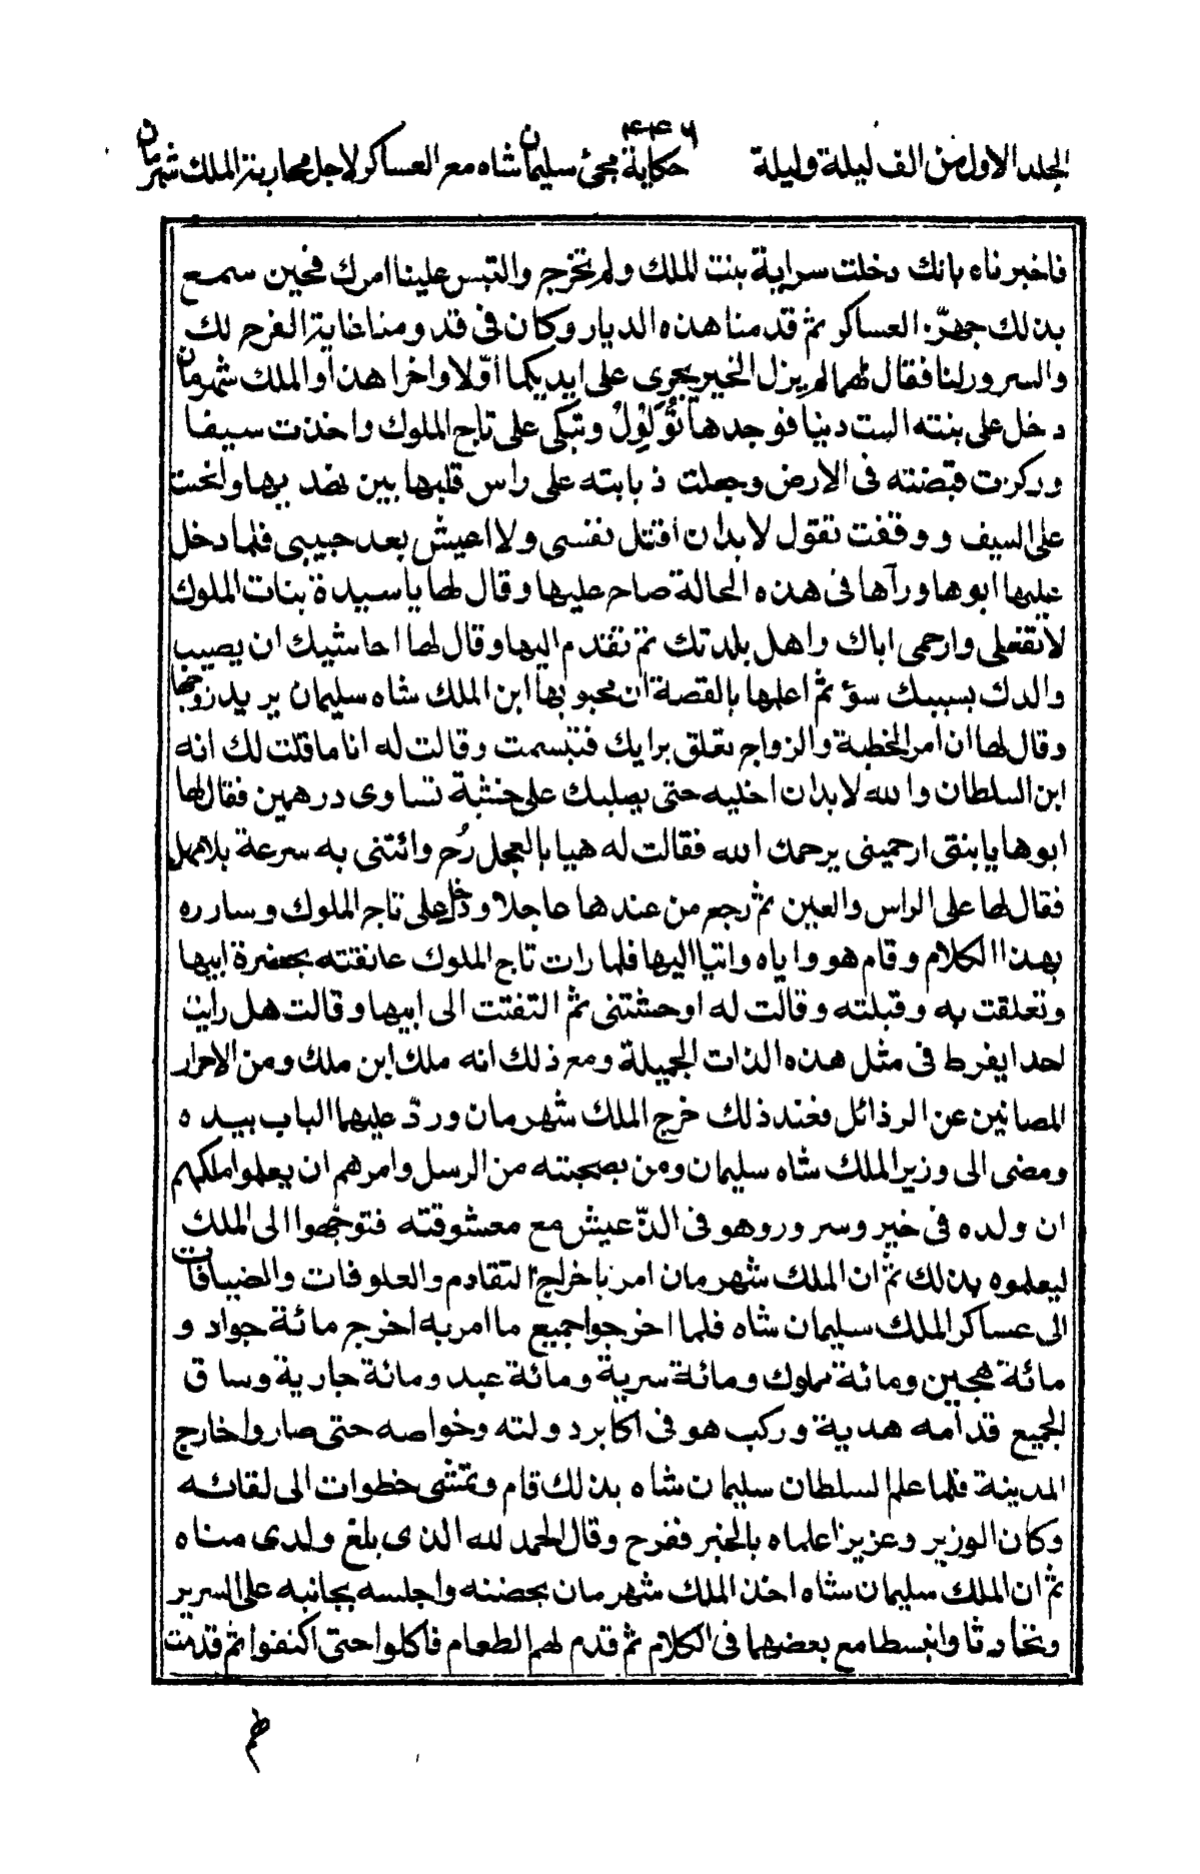 ٤٤٦
الجلد الاول من الف ليلة وليلة حكاية مجئ سليمان شاه مع العساكر لاجل محاربة الملك شهرمان
فاخبرناه بانك دخلت سراية بنت الملك ولم تخرج والتبس علينا امرك فحين سمع
بذلك جهّز العساكر ثم قدمنا هذه الديار وكان فى قدومنا غاية الفرح لك
والسرور لنا فقال لهما لم يزل الخير يجرى على ايديكما اوّلا واخرا هذا والملك شهرمان
دخل على بنته الست دنيا فوجدها تُوَلْوِلْ وتبكى على تاج الملوك واخذت سيفا
وركزت قبضته فى الارض وجعلت ذبابته على راس قلبها بين نهديها وانحنت
على السيف ووقفت تقول لابد ان اقتل نفسى ولا اعيش بعد حبيبى فلما دخل
عليها ابوها ورآها فى هذه الحالة صاح عليها وقال لها يا سيدة بنات الملوك
لا تفعلى وارحمى اباك واهل بلدتك ثم تقدم اليها وقال لها احاشيك ان يصيب
والدك بسببك سؤ ثم اعلمها بالقصة ان محبوبها ابن الملك شاه سليمان يريد زوجها
وقال لها ان امر الخطبة والزواج تعلق برايك فتبسمت وقالت له انا ما قلت لك انه
ابن السلطان والله لابد ان اخليه حتى يصلبك على خشبة تساوى درهمين فقال لها
ابوها يا بنتى ارحمينى يرحمك الله فقالت له هيا بالعجل رُح وائتنى به سرعة بلا مهل
فقال لها على الراس والعين ثم رجع من عندها عاجلا ودخل على تاج الملوك وسارره
بهذا الكلام وقام هو واياه واتيا اليها فلما رات تاج الملوك عانقته بحضرة ابيها
وتعلقت به وقبلته وقالت له اوحشتنى ثم التفتت الى ابيها وقالت هل رايت
احدا يفرط فى مثل هذه الذات الجميلة ومع ذلك انه ملك ابن ملك ومن الاحرار
المصانين عن الرذائل فعند ذلك خرج الملك شهرمان وردّ عليهما الباب بيده
ومضى الى وزير الملك شاه سليمان ومن بصحبته من الرسل وامرهم ان يعلموا ملكهم
ان ولده فى خير وسرور وهو فى الذّ عيش مع معشوقته فتوجهوا الى الملك
ليعلموه بذلك ثم ان الملك شهرمان امر باخراج التقادم والعلوفات والضيافات
الى عساكر الملك سليمان شاه فلما اخرجوا جميع ما امر به اخرج مائة جواد و
مائة هجين ومائة مملوك ومائة سرية ومائة عبد ومائة جارية وساق
الجميع قدامه هدية وركب هو فى اكابر دولته وخواصه حتى صاروا خارج
المدينة فلما علم السلطان سليمان شاه بذلك قام وتمشى خطوات الى لقائه
وكان الوزير وعزيز اعلماه بالخبر ففرح وقال الحمد لله الذى بلغ ولدى مناه
ثم ان الملك سليمان شاه اخذ الملك شهرمان بحضنه واجلسه بجانبه على السرير
وتحادثا وانبسطا مع بعضهما فى الكلام ثم قدم لهم الطعام فاكلوا حتى اكتفوا ثم قدمت